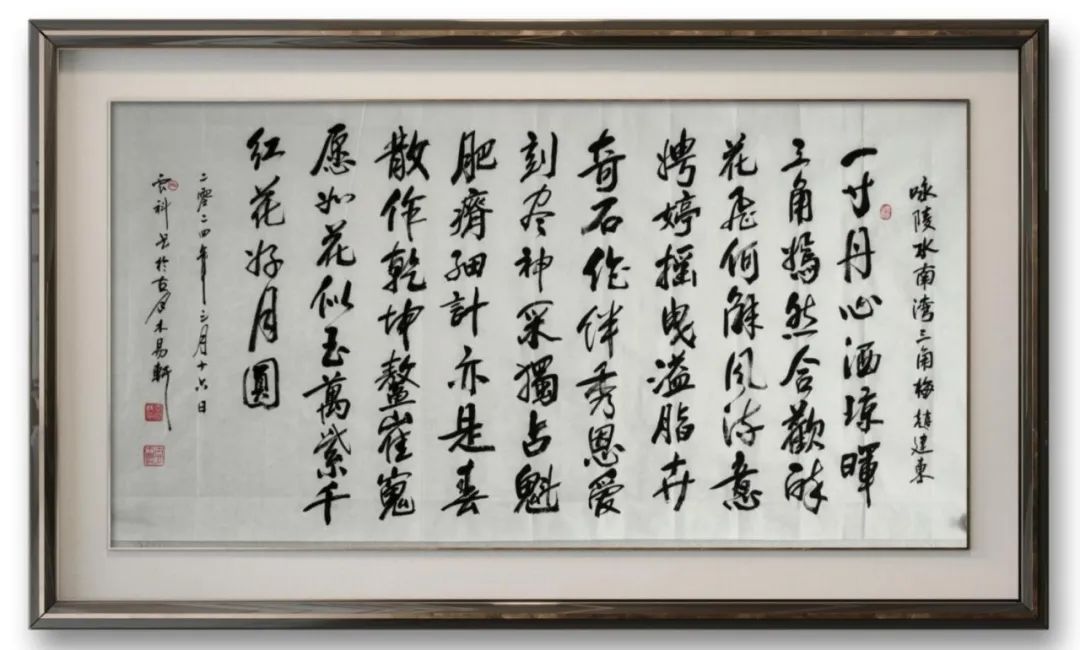 咏陵水南湾三角梅 赵建东
一寸丹心洒琼晖
三角嫣然合歡醉
花飛何解风流意
娉婷摇曳溢脂卉
奇石作伴秀恩爱
刻尽神采獨占魁
肥瘠細計亦是春
散作乾坤鳌崔嵬
愿如花似玉萬紫千
红花好月圓
二零二四年三月十六日
雲科书於古月木易軒